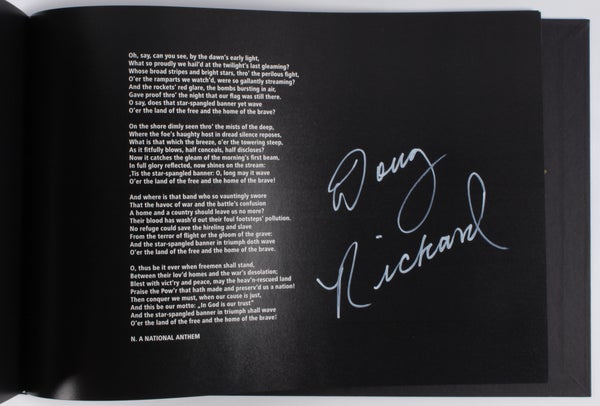 Oh, say, can you see, by the dawn's early light,
What so proudly we hail'd at the twilight's last gleaming?
Whose broad stripes and bright stars, thro' the perilous fight,
O'er the ramparts we watch'd, were so gallantly streaming?
And the rockets' red glare, the bombs bursting in air,
Gave proof thro' the night that our flag was still there.
O say, does that star-spangled banner yet wave
O'er the land of the free and the home of the brave?
On the shore dimly seen thro' the mists of the deep,
Where the foe's haughty host in dread silence reposes,
What is that which the breeze, o'er the towering steep,
As it fitfully blows, half conceals, half discloses?
Now it catches the gleam of the morning's first beam,
In full glory reflected, now shines on the stream:
„Tis the star-spangled banner: O, long may it wave
O'er the land of the free and the home of the brave!
And where is that band who so vauntingly swore
That the havoc of war and the battle's confusion
A home and a country should leave us no more?
Their blood has wash'd out their foul footsteps' pollution.
No refuge could save the hireling and slave
From the terror of flight or the gloom of the grave:
And the star-spangled banner in triumph doth wave
O'er the land of the free and the home of the brave.
O, thus be it ever when freemen shall stand,
Between their lov'd homes and the war's desolation;
Blest with vict'ry and peace, may the heav'n-rescued land
Praise the Pow'r that hath made and preserv'd us a nation!
Then conquer we must, when our cause is just,
And this be our motto: „In God is our trust"
And the star-spangled banner in triumph shall wave
O'er the land of the free and the home of the brave!
N. A NATIONAL ANTHEM
Doug
Rickard